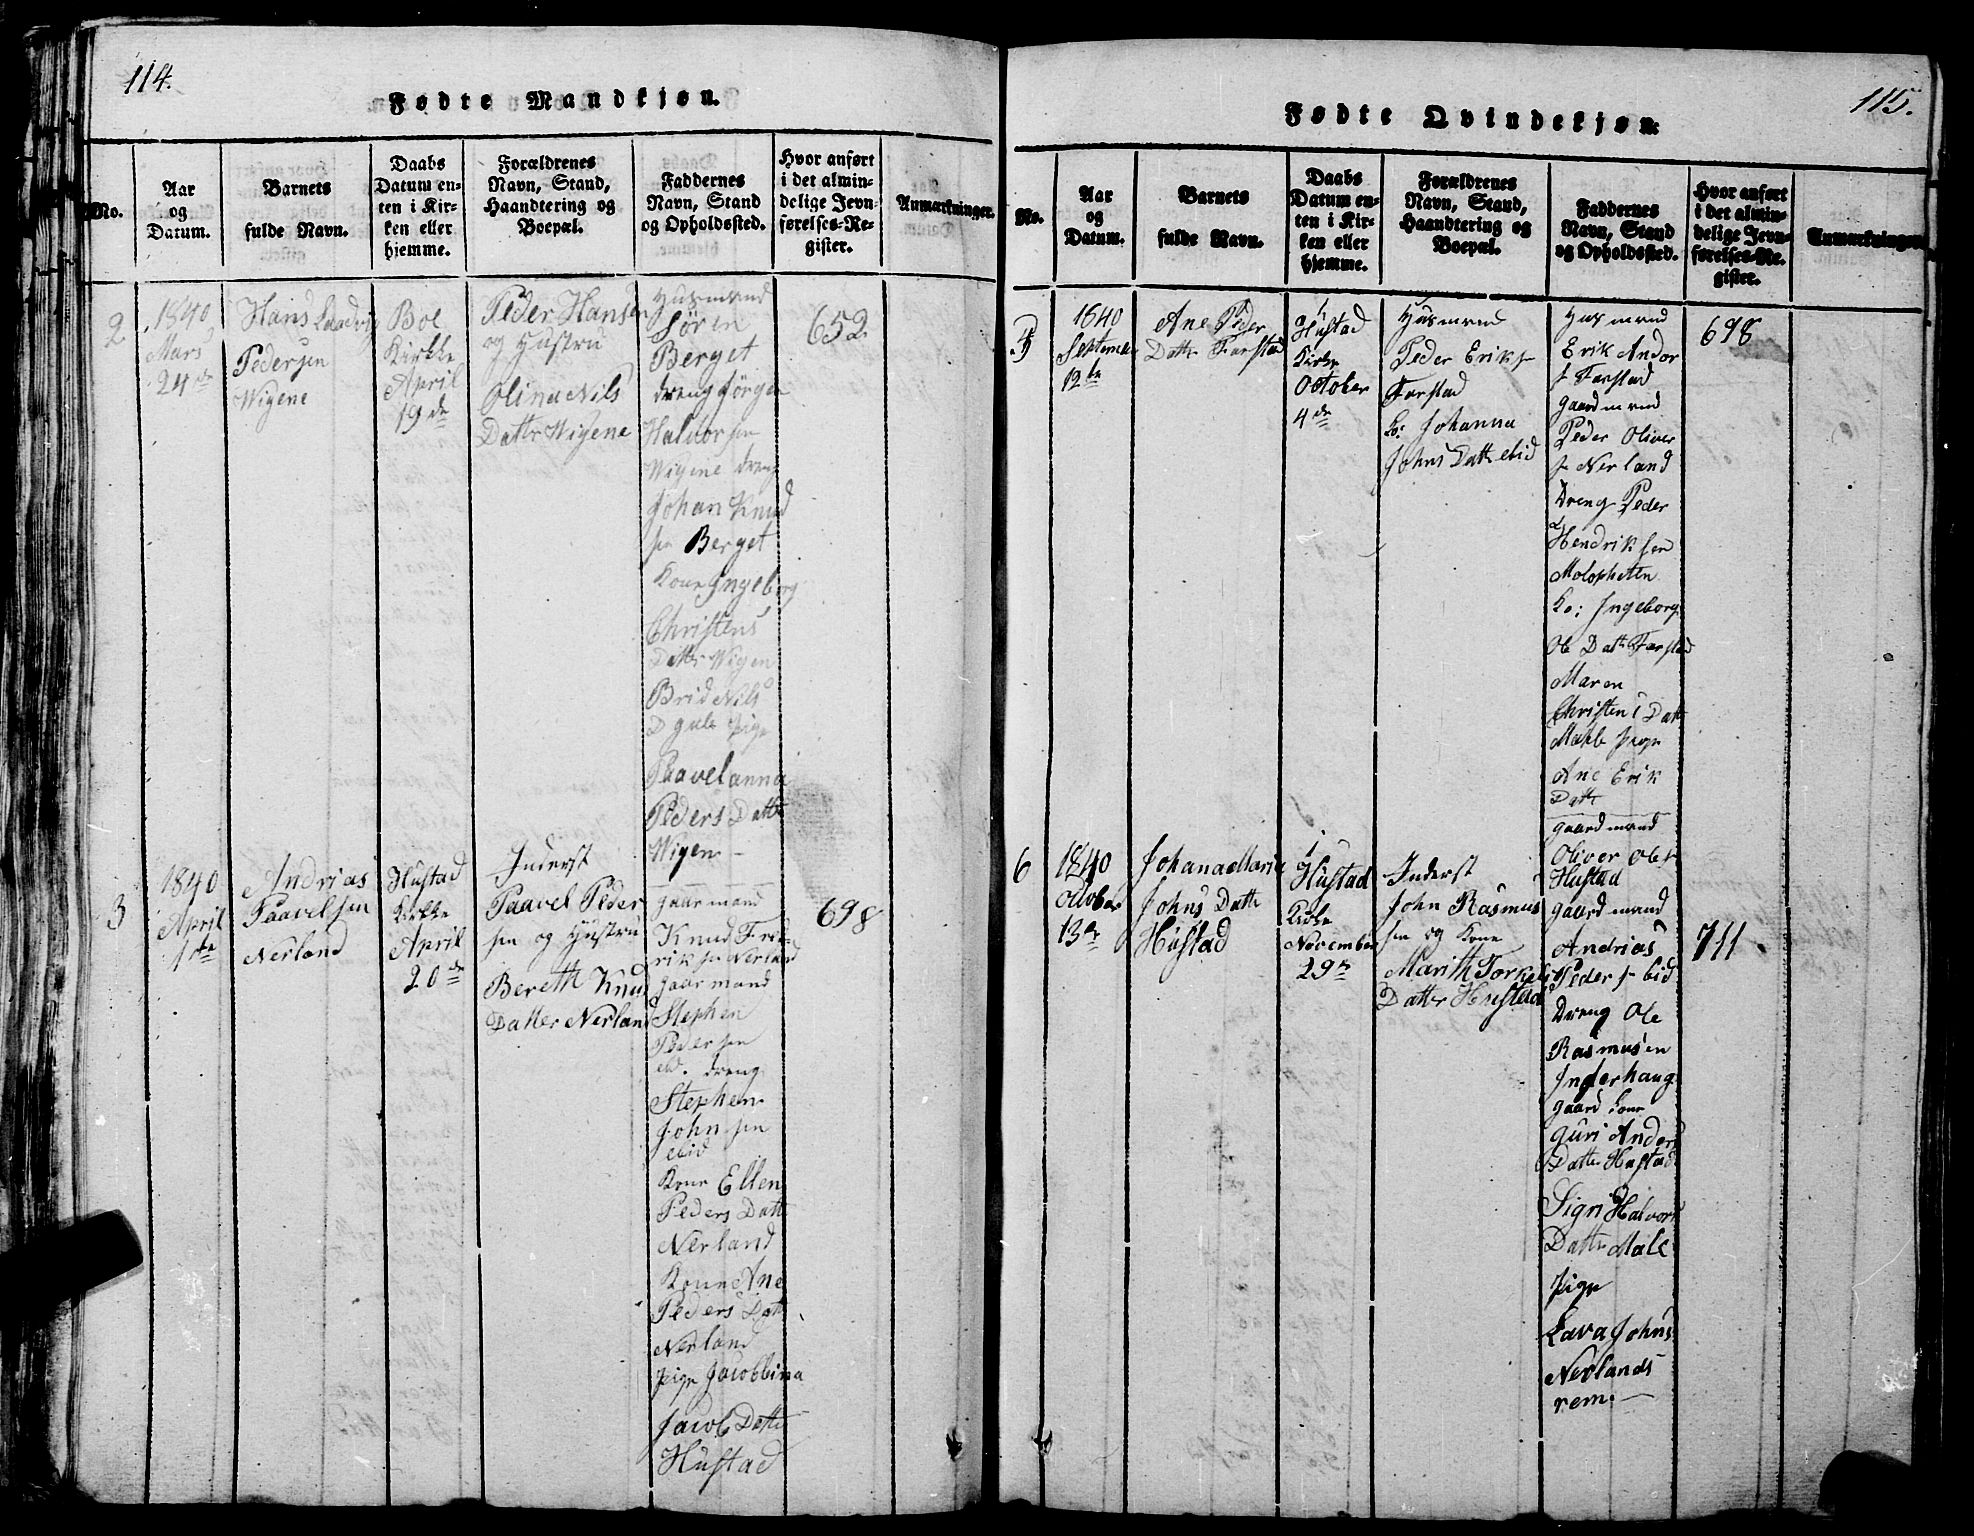 114.
Fødte Mandkjøn.
No.
Aar
og
Datum.
Barnets
fulde Navn.
Daabs
Datum en-
ten i Kir-
ken eller
hjemme.
Forældrenes
Navn, Stand,
Haandtering og
Boepæl.
Faddernes
Navn, Stand
og Opholdssted.
Hvor anført
i det almin-
delige Jevn-
førelses-Re-
gister.
Anmærkninger.
2
1840
Mars
24de
Hans Laadvig
Pedersen
Wigene
Boe
Kirkke
April
19de
Peder Hansen
og Hustru
Olina Nils
Datter Wigene
Husmand
Søren
Berget
dreng Jørgen
Halvorsen
Wigene dreng
Johan Knud
sen Berget
Kone Ingeborg
Christens
Datter Wigen
Brid Nils
D gule pige
Paavelanna
Peders Datter
Wigen
652
3
1840
April
1de
Andrias
Paavelsen
Nerland
Hustad
Kirkke
April
20de
Inderst
Paavel Peder
sen og Hustru
Bereth Knud
Datter Nerland
gaarmand
Knud Fride
riksen Nerland
gaarmand
Stephen
Pedersen
eid. dreng
Stephen
Johnsen
eid
Kone Ellen
Peders Datt
Nerland
Kone Ane
Peders Datt
Nerland
pige Jacobbina
Jacob Datter
Hustad
698
115.
Fødte Qvindekjøn.
No.
Aar
og
Datum.
Barnets
fulde Navn.
Daabs
Datum en-
ten i Kir-
ken eller
hjemme.
Forældrenes
Navn, Stand,
Haandtering og
Boepæl.
Faddernes
Navn, Stand
og Opholdssted.
Hvor anført
i det almin-
delige Jevn-
førelses-Re-
gister.
Anmærkninger.
5
1840
Septemer
12te
Ane Peder
Datter Farstad
i
Hustad
Kirke
October
4de
Husmand
Peder Eriks
Farstad
Ko: Johanna
Johns Datt ebid
Husmand
Erik Andor
s Farstad
gaardmand
Peder Oliver
s Nerland
Dreng Peder
Hendriksen
Molopheten
Ko: Ingeborg
Ole Datt Farstad
Maren
Christens Datt
Mahle pige
Ane Erik
Datt
698
6
1840
October
13de
Johana Marie
Johns Datter
Hustad
i
Hustad
Kirke
November
29de
Inderst
John Rasmus
sen og Kone
Marith Torkels
Datter Hustad
gaardmand
Oliver Oles
Hustad
gaardmand
Andrias
Peder s bid
Dreng Ole
Rasmusen
Inderhaug
gaard kone
guri Anders
Datter Hustad
Sigri Halvors
Datter Male
pige
Lava Johns
Nerlands
rem.
711